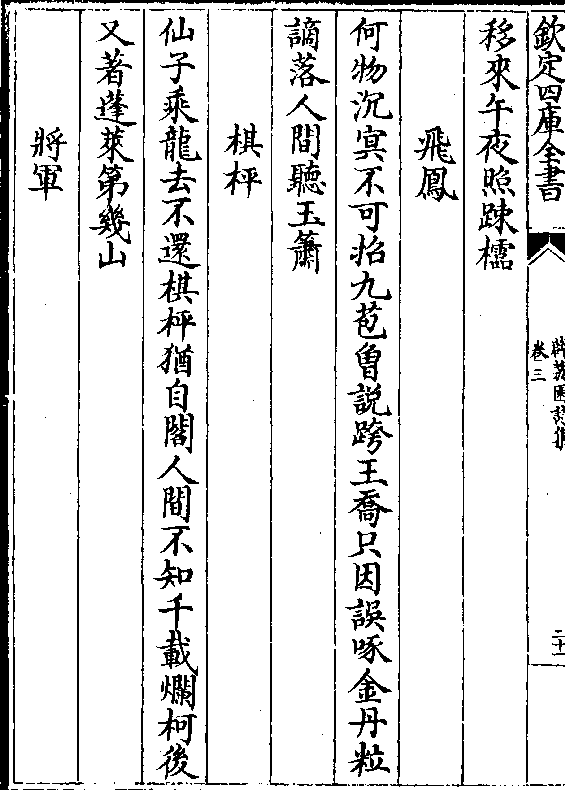 欽定四庫全書
卷三
二十一
移來午夜照疎櫺
飛鳳
何物沉冥不可招九苞曾説跨王喬只因誤啄金丹粒
謫落人間聽玉簫
棋枰
仙子乘龍去不還棋枰猶自閣人間不知千載爛柯後
又著蓬萊第幾山
將軍